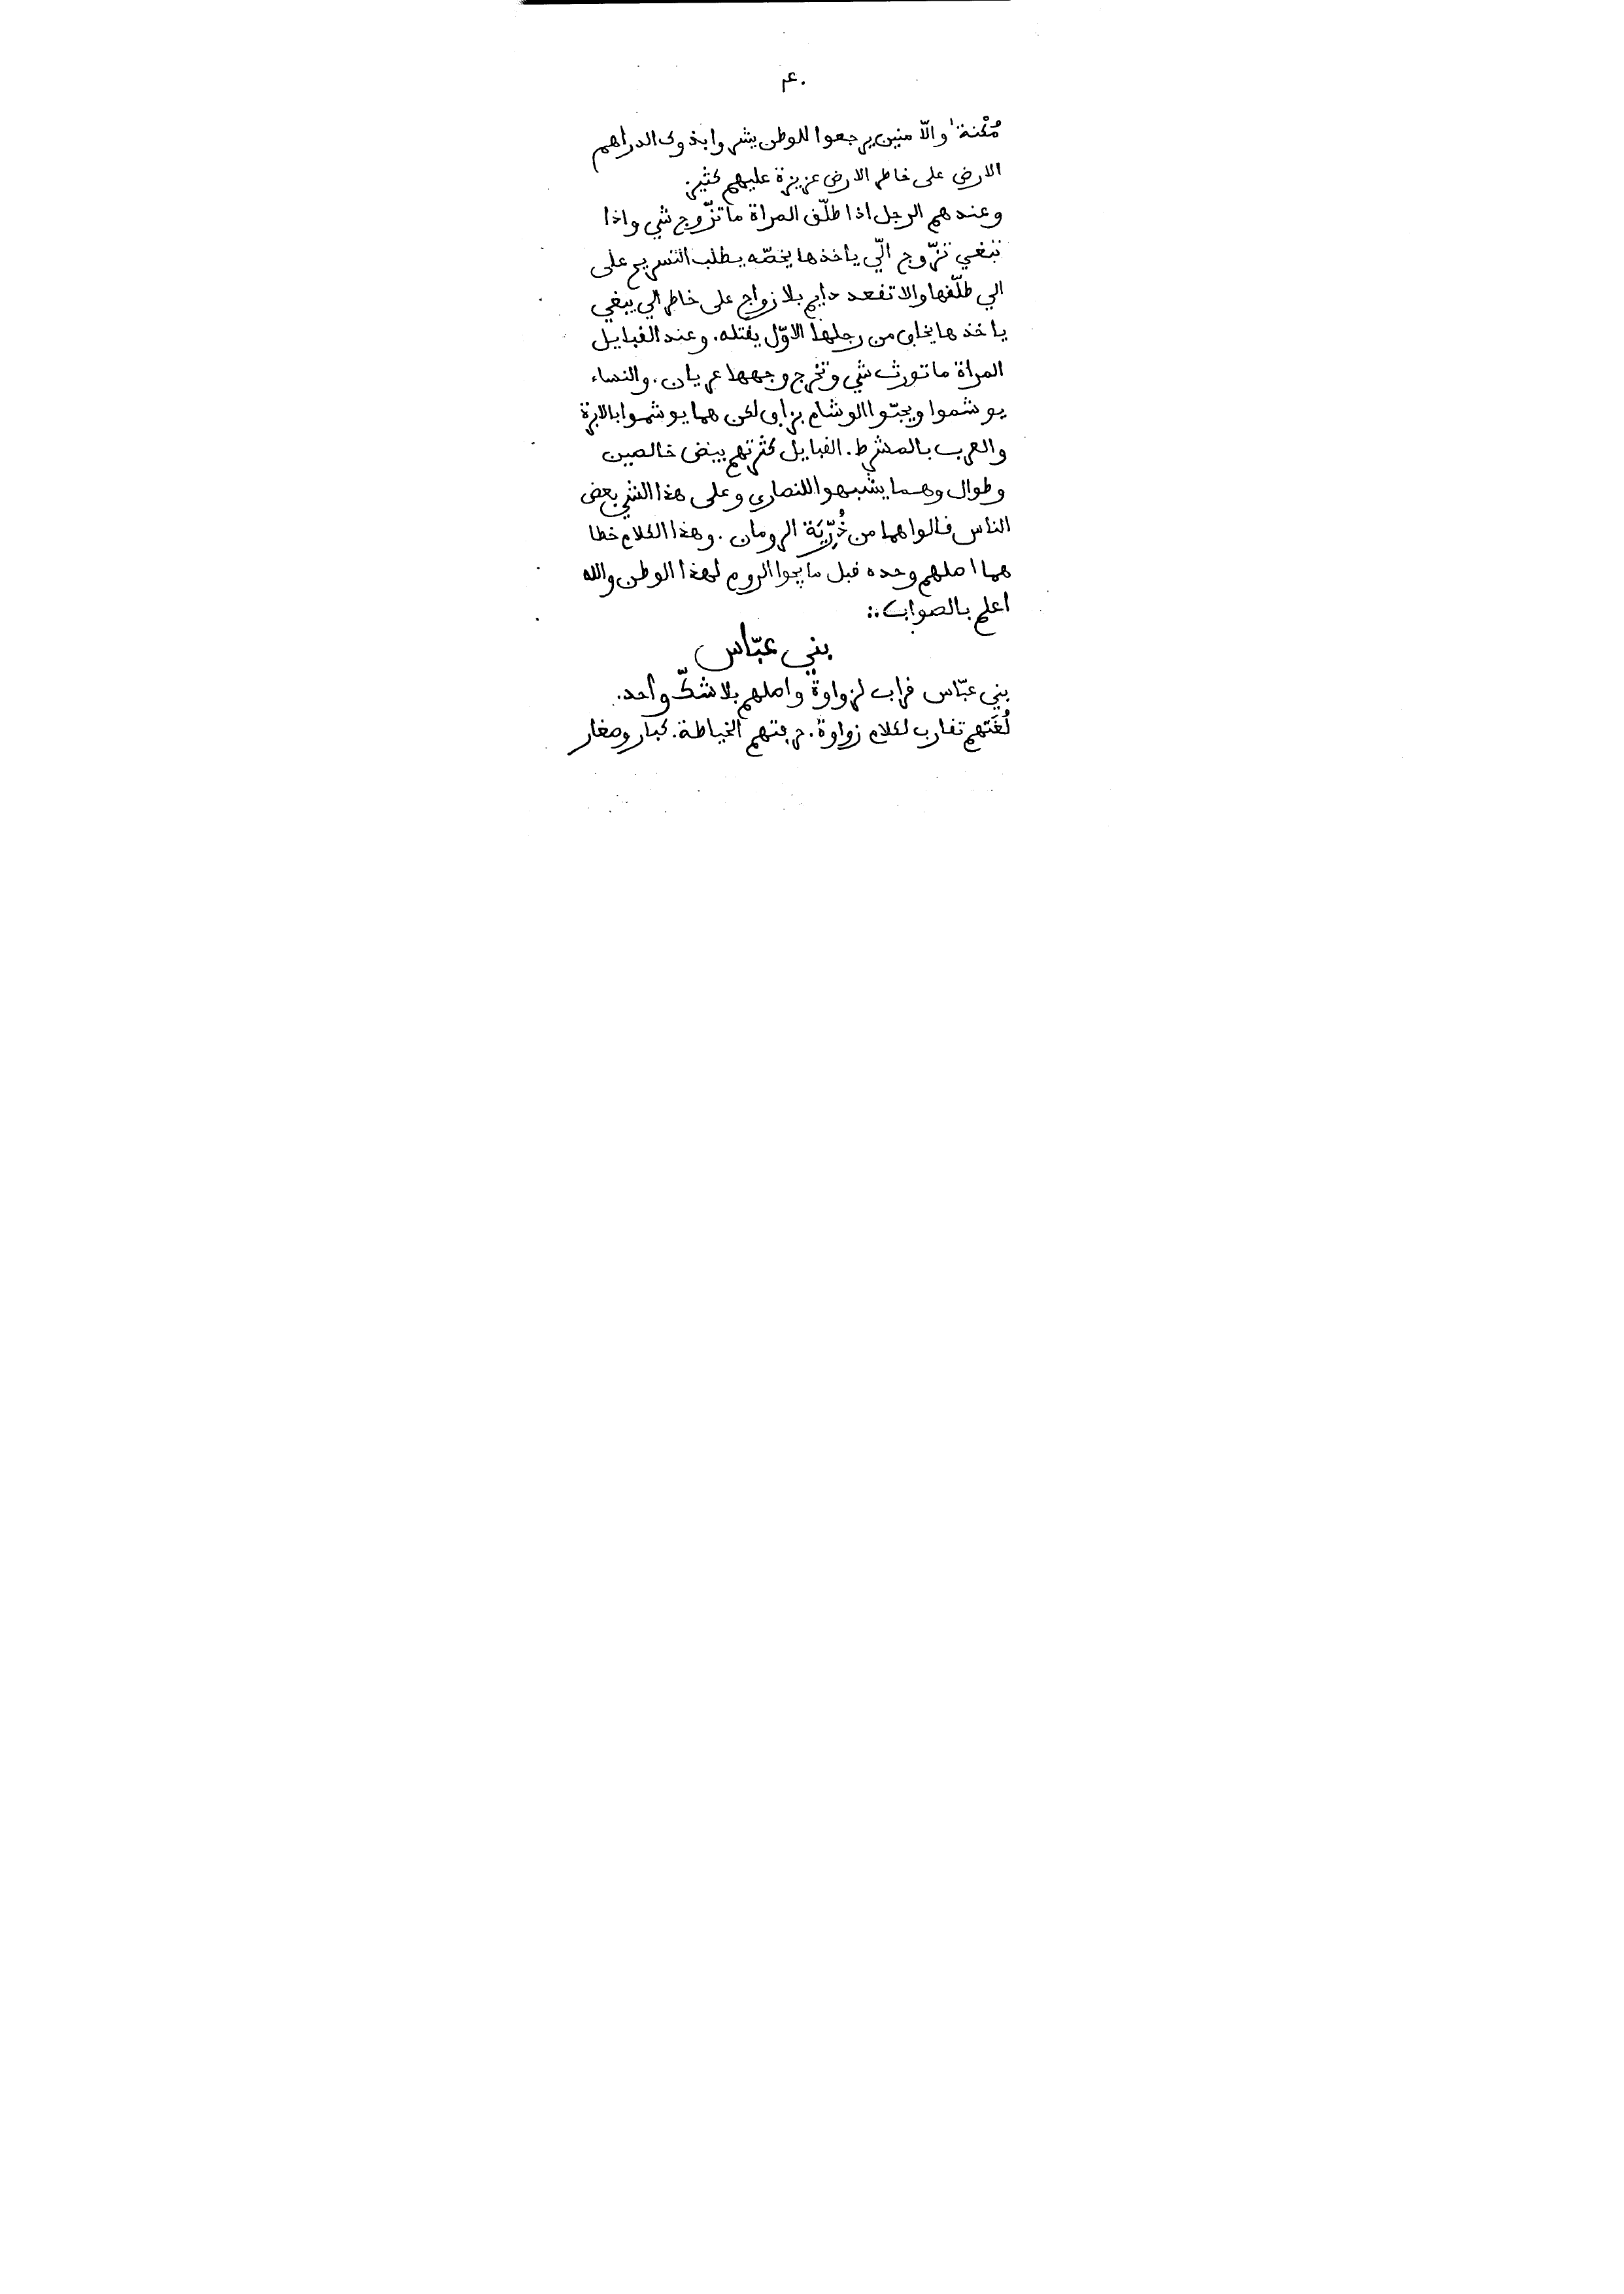 ٤٠
مُكْنة وإلّا منين يرجعوا للوطن يشروا بذوك الدراهم
الارض على خاطر الارض عزيزة عليهم كثير.
وعندهم الرجل اذا طلّڧ المراة ما تزّوج شي واذا
تبغي تزّوج الّي ياخذها يخصّه يطلب التسريح على
الي طلّڧها والا تڧعد دايم بلا زواج على خاطر الي يبغي
ياخذها يخاڢ من رجلها الاوّل يڧتله. وعند الڧبايل
المراة ما تورث شي وتخرج وجهها عريان. والنساء
يوشموا ويحبّوا الوشام بزاڢ لكن هما يوشموا بالابرة
والعرب بالمشرط. الڧبايل كثرتهم بيض خالصين
وطوال وهما يشبهوا للنصارى وعلى هذا الشي بعض
الناس ڧالوا هما من ذُرِّيَة الرومان. وهذا الكلام خطا
هما اصلهم وحده ڧبل ما يجوا الروم لهذا الوطن والله
اعلم بالصواب ؞
بني عبّاس
بني عبّاس ڧراب لزواوة واصلهم بلا شكّ واحد.
لُغَتهم تڧارب لكلام زواوة. حرڢتهم الخياطة. كبار وصغار